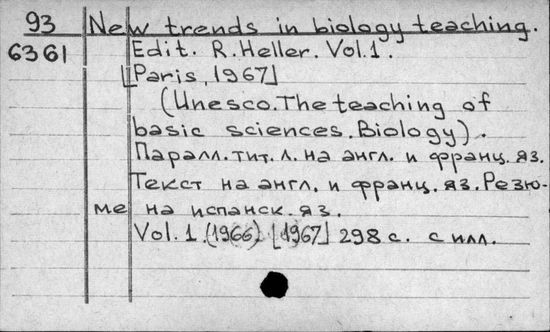 93 New trends in biology teaching.
6361 Edit. R. Heller. Vol. 1.
[Paris, 1967]
(Unesco. The teaching of
basic sciences. Biology).
Паралл. тит. л. на англ. и франц. яз.
Текст на англ. и франц. яз. Резю-
ме на испанск. яз.
Vol. 1. (1966) [1967] 298 с. с илл.